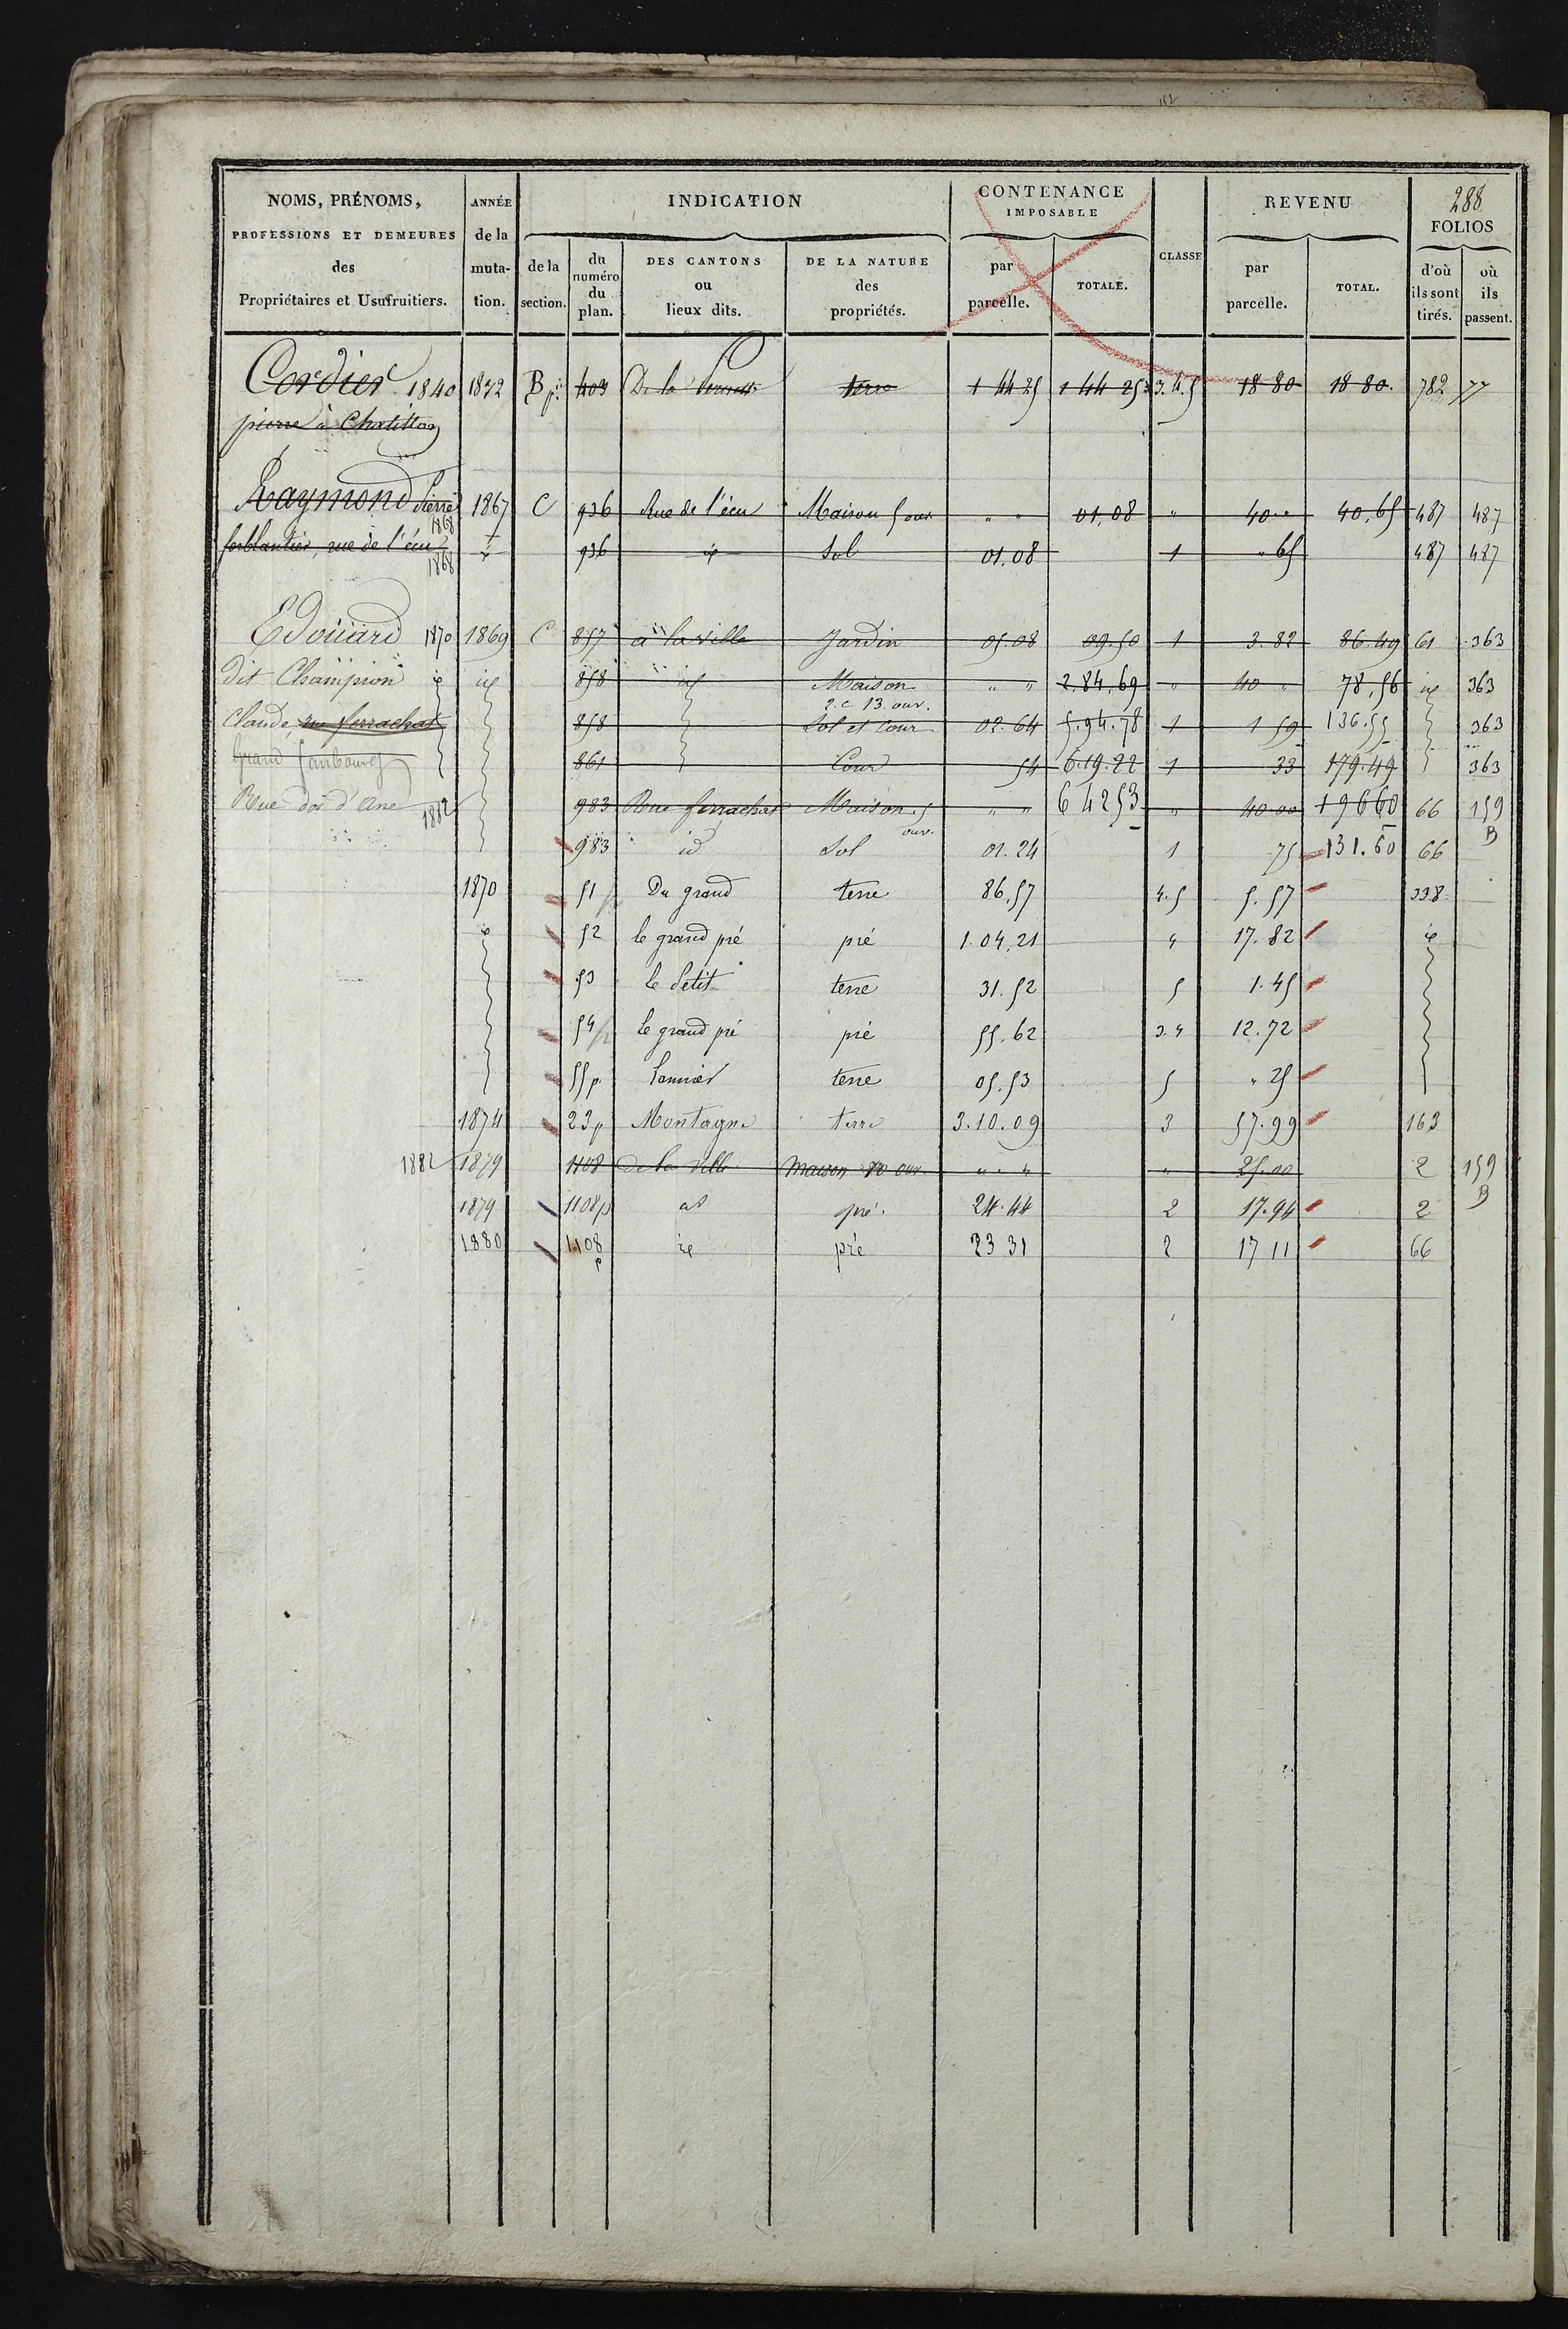 288
NOMS, PRÉNOMS, PROFESSIONS ET DEMEURES des Propriétaires et Usufruitiers. ANNÉE de la mutation. INDICATION de la section. du numéro du plan. DES CANTONS ou lieux dits. DE LA NATURE des propriétés. CONTENANCE IMPOSABLE par parcelle. TOTALE. CLASSE REVENU par parcelle. TOTAL. FOLIOS d'où ils sont tirés. où ils passent.
Cordier 1840 1832 B p. 403 De la terre 1 44 25 1 44 25 3.4.5 18 80 18 80. 782 77
pierre à Chatillon
Raymond Pierre 1868 1867 C 936 Rue de l'écu Maison 5 ouv " " 01.08 " 40 " 40.65 487 487
ferblantier, rue de l'écu 1868 id 936 id Sol 01.08 1 " 65 487 487
Edouard 1870 1869 C 857 a la ville Jardin 05.08 09.50 1 3.82 86.49 61 363
dit Champion id id 858 id Maison 2.c. 13 ouv. " " 2.84.69 " 40 " 78.56 id 363
Claude, rue ferrachat 858 Sol et cour 02.64 5.94.78 1 1 59 136.55 363
Grand faubourg 861 Cour 54 6.19.22 1 33 179.49 363
Rue d'ane 1882 983 Rue ferrachat Maison 5 ouv. " " 6 42 53 " 40 00 196 60 66 159 B
983 id Sol 01.24 1 75 131.60 66
1870 51 Du grand terre 86.57 4.5 5.57 338
id 52 le grand pré pré 1.04.21 4 17.82 id
53 le Petit terre 31.52 5 1.45
54 le grand pré pré 55.62 3.4 12.72
55 p. terre 05.53 5 " 25
1874 23 p Montagne terre 3.10.09 3 57.99 163
1882 1879 1108 de la Ville maison 10 ouv. " " " " 25.00 2 159 B
1879 1108 p id pré. 24.44 2 17.94 2
1880 1108 p id pré 23 31 2 17 11 66